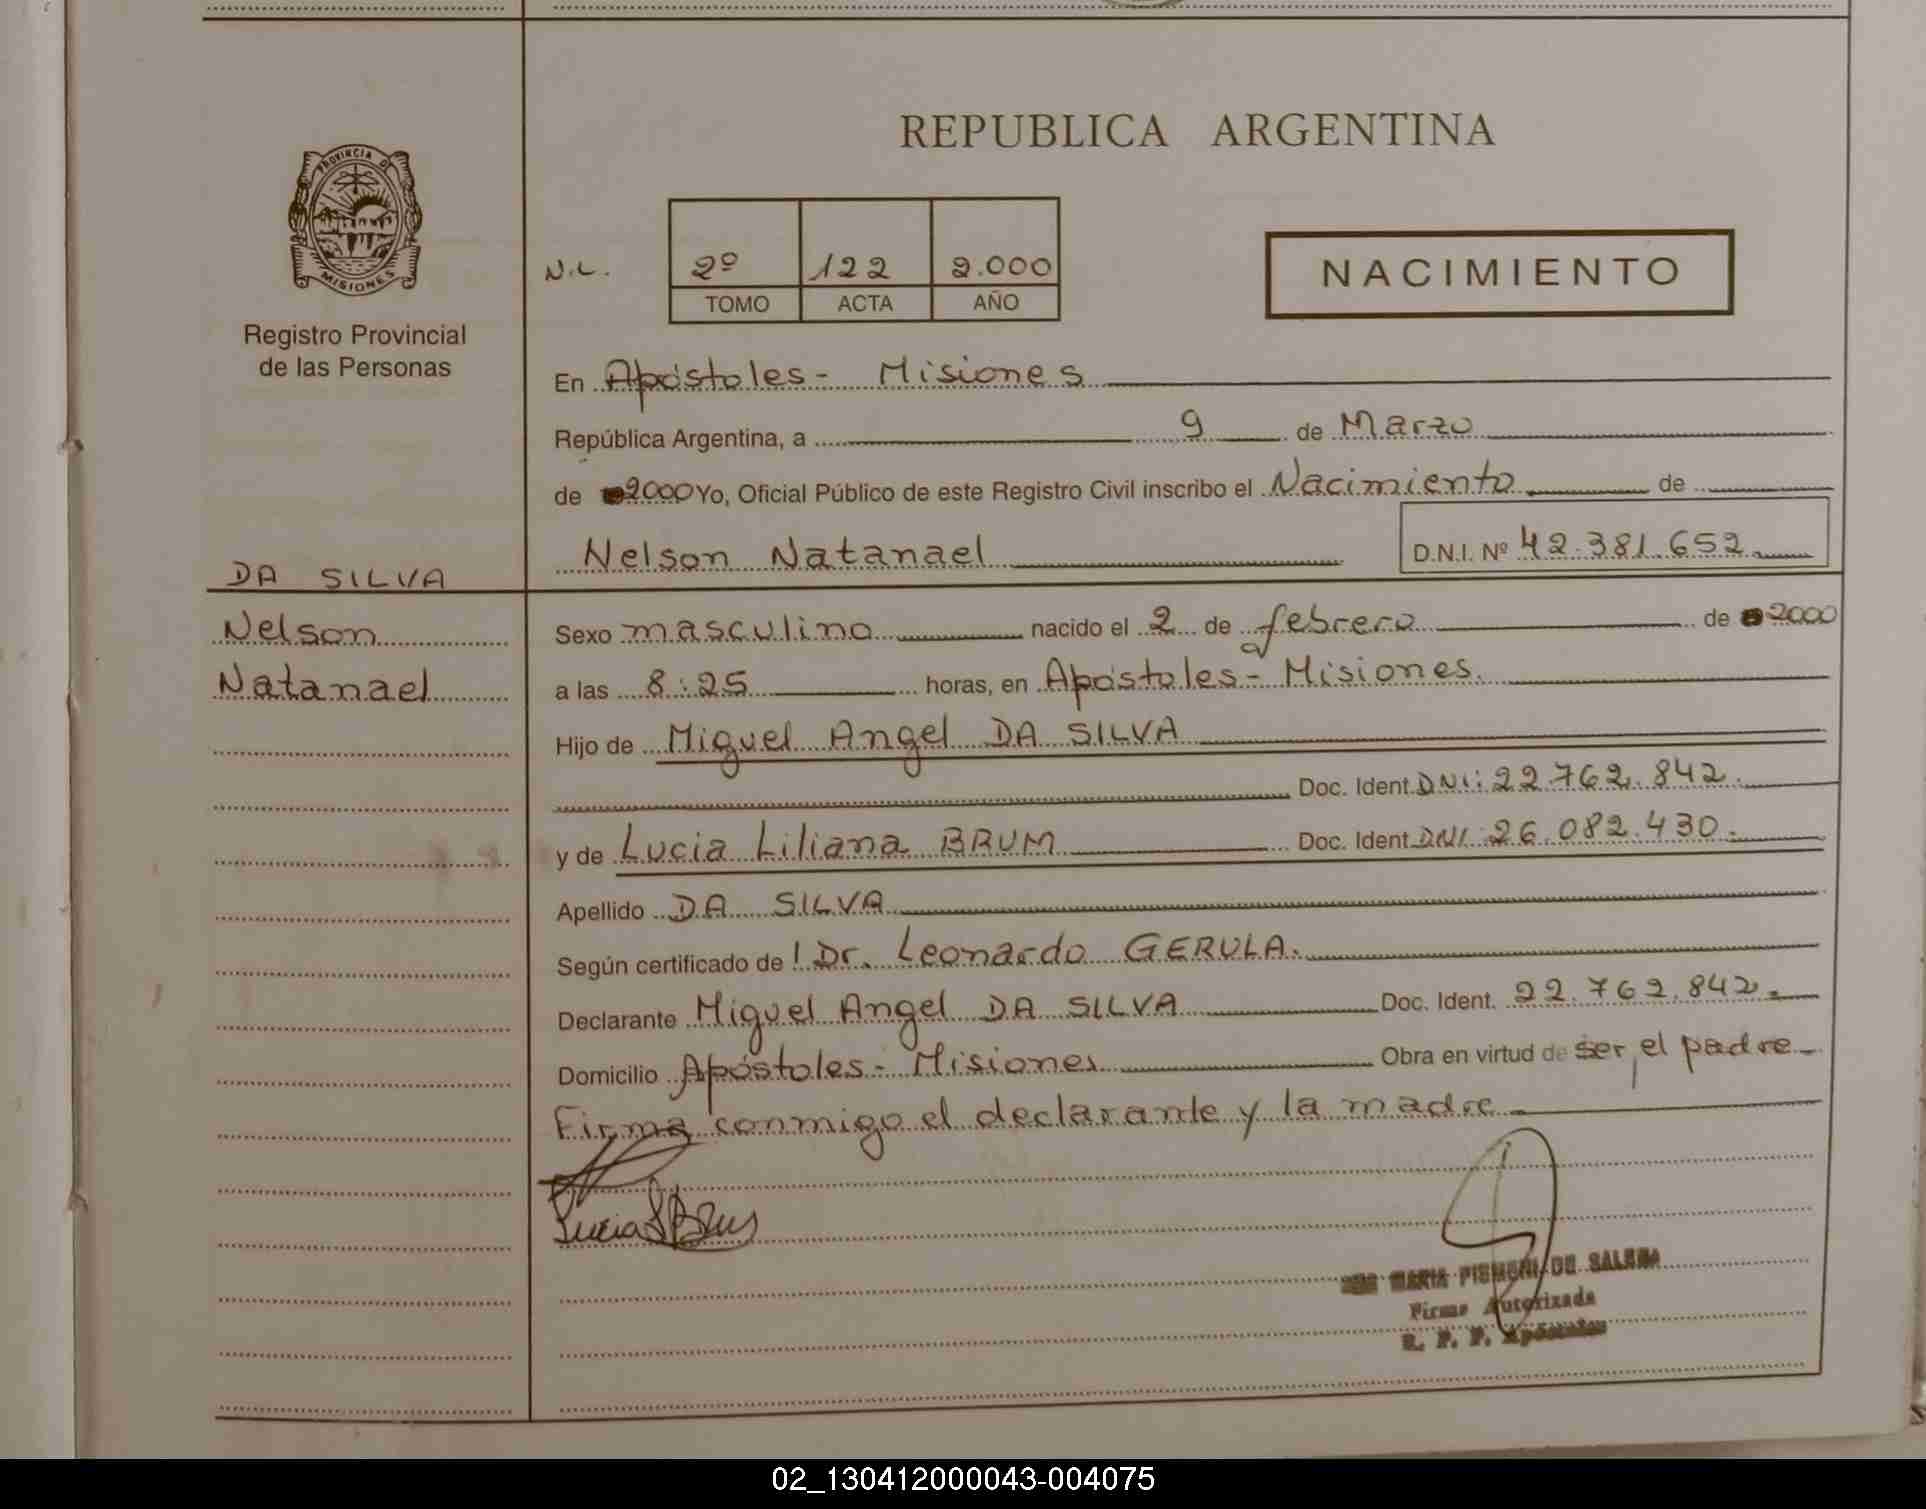 PROVINCIA DE
MISIONES
Registro Provincial
de las Personas
DA SILVA
Nelson
Natanael
REPUBLICA ARGENTINA
N.L.
2º 122 2.000
TOMO ACTA AÑO
NACIMIENTO
En Apóstoles - Misiones
República Argentina, a 9 de Marzo
de 2000 Yo, Oficial Público de este Registro Civil inscribo el Nacimiento de
Nelson Natanael D.N.I. Nº 42.381.652
Sexo masculino nacido el 2 de febrero de 2000
a las 8:25 horas, en Apóstoles - Misiones.
Hijo de Miguel Angel DA SILVA
Doc. Ident. DNI: 22.762.842.
y de Lucia Liliana BRUM Doc. Ident. DNI: 26.082.430.
Apellido DA SILVA
Según certificado de Dr. Leonardo GERULA.
Declarante Miguel Angel DA SILVA Doc. Ident. 22.762.842.
Domicilio Apóstoles - Misiones Obra en virtud de ser el padre
Firma conmigo el declarante y la madre
Lucia L Brum
MARIA DE
Firma Autorizada
R. P. P. Apóstoles
02_130412000043-004075